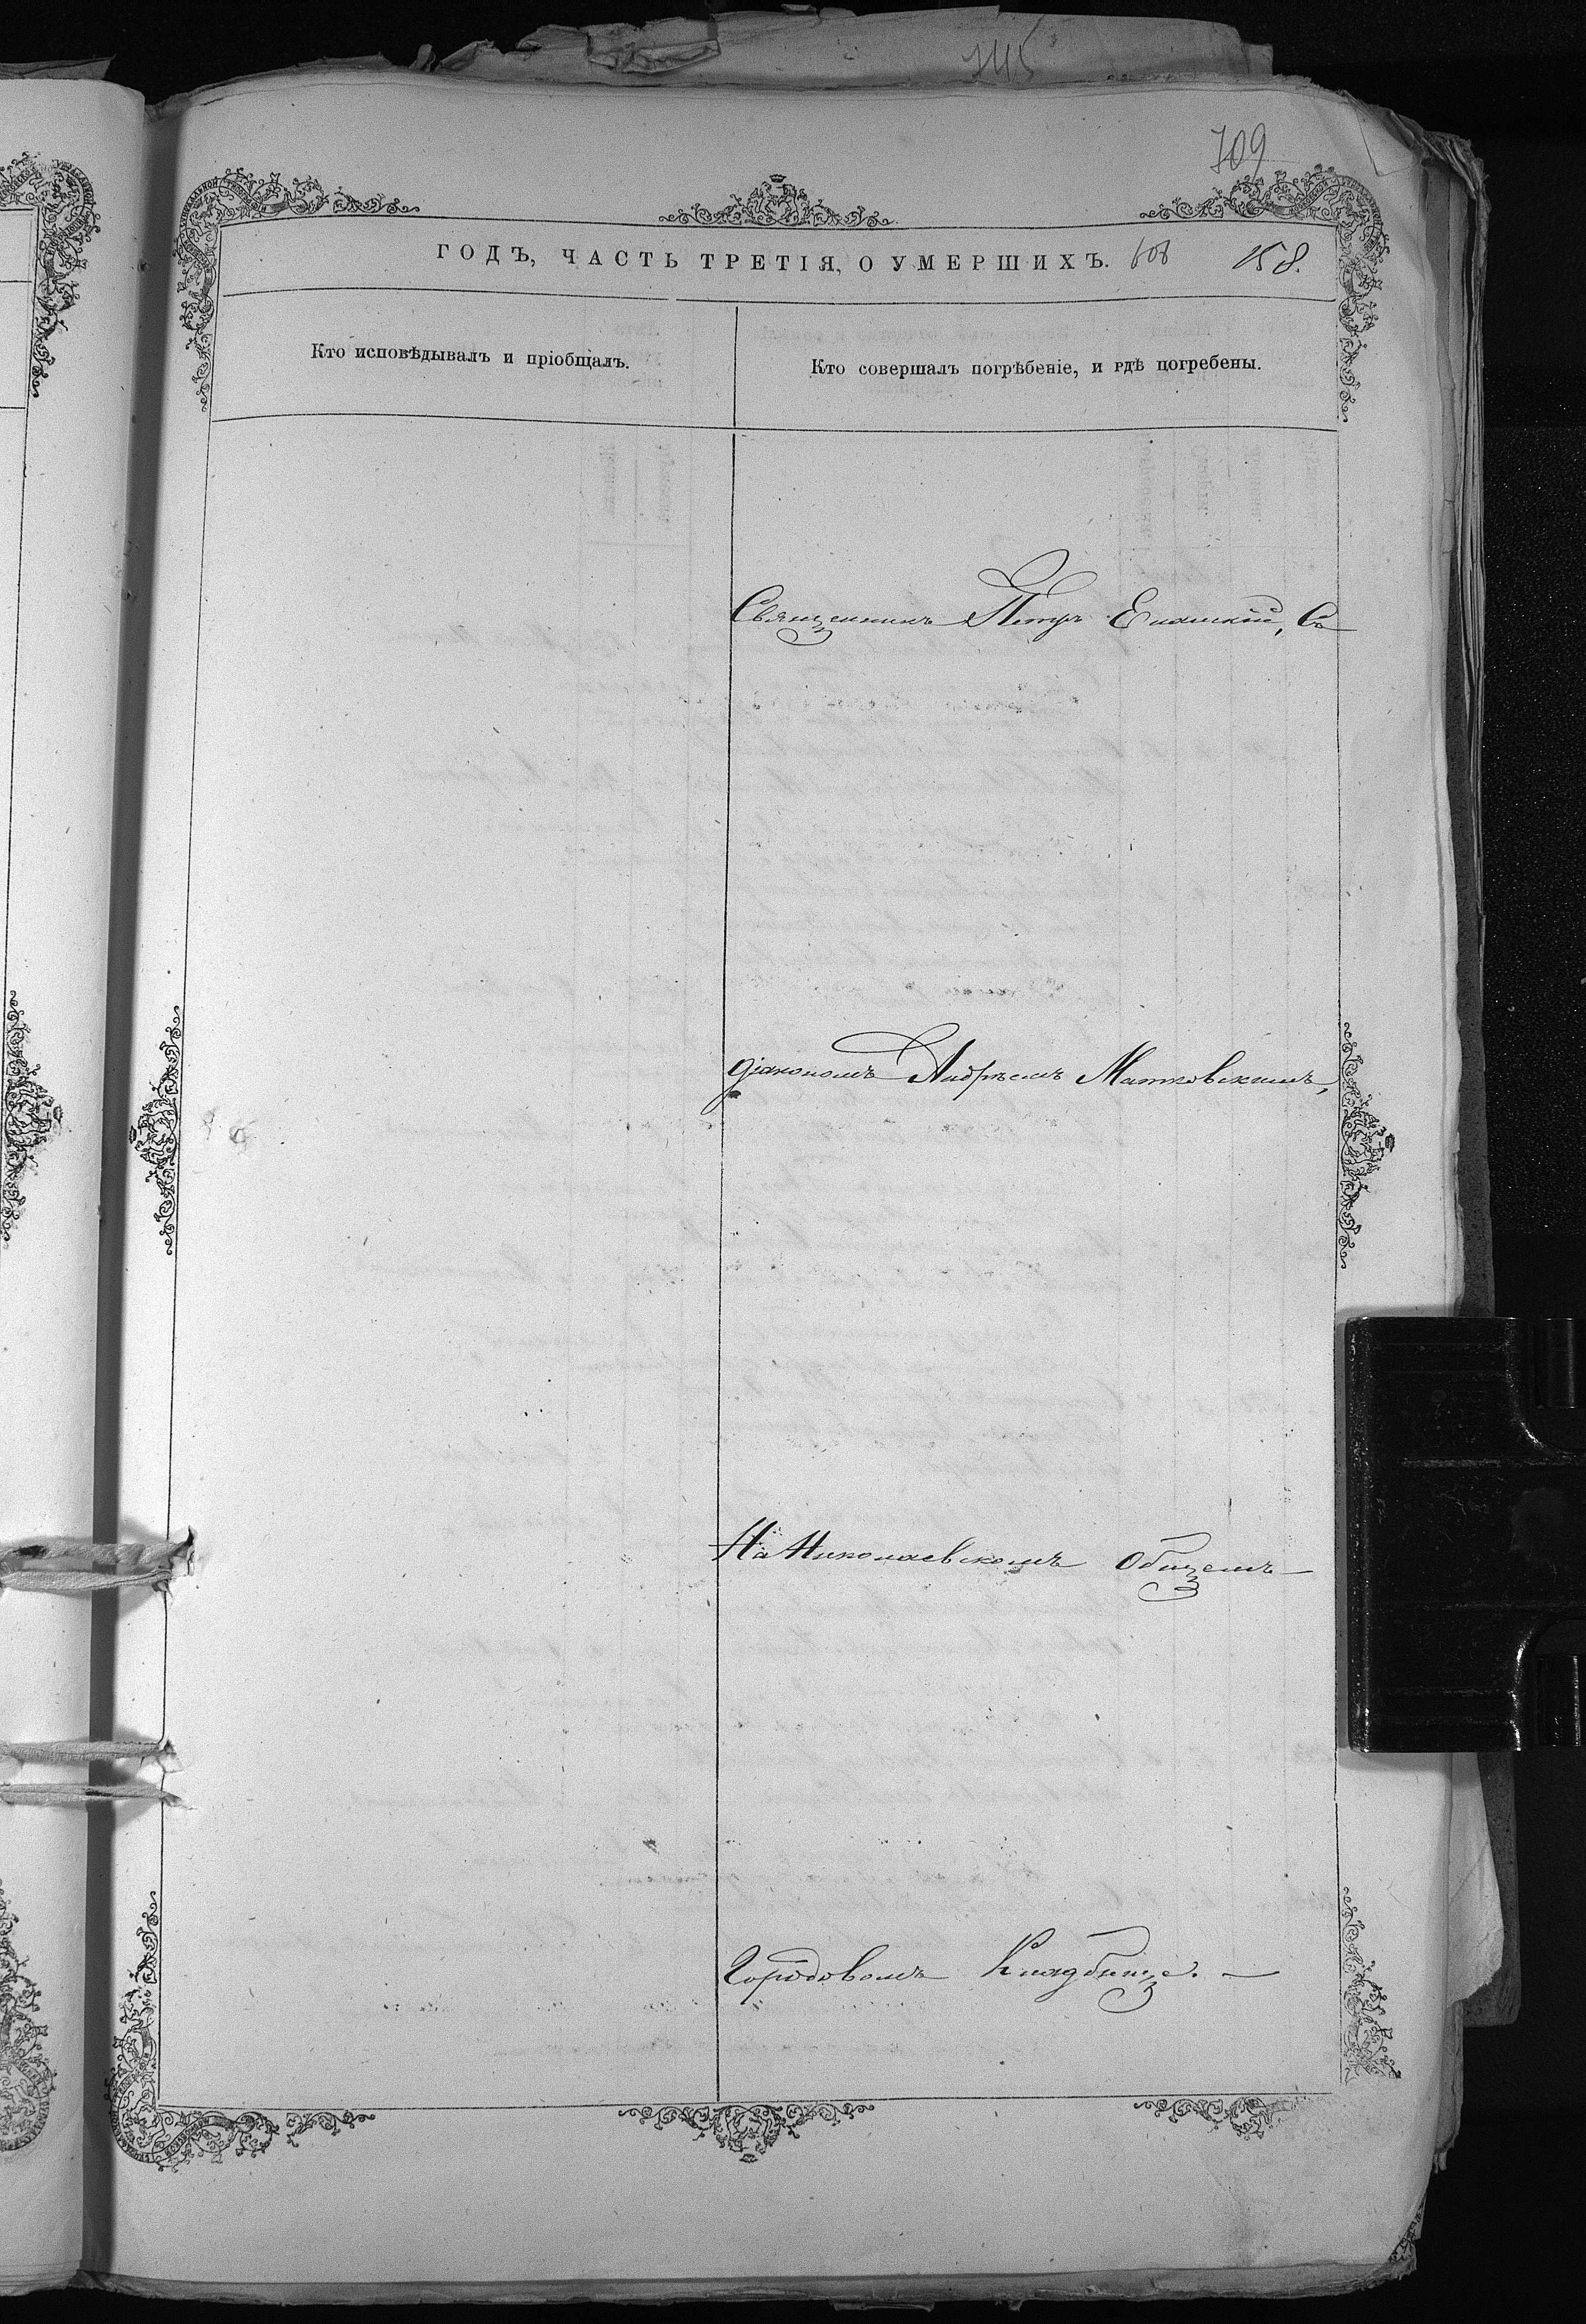 745
709
ГОДЪ, ЧАСТЬ ТРЕТІЯ, О УМЕРШИХЪ. 608 158.
Кто исповѣдывалъ и пріобщалъ.
Кто совершалъ погрѣбеніе, и гдѣ погребены.
Священникъ Петръ Еланскій, Съ
діакономъ Андреемъ Матковскимъ,
На Николаевскомъ Общемъ
Городовомъ Кладбище. —